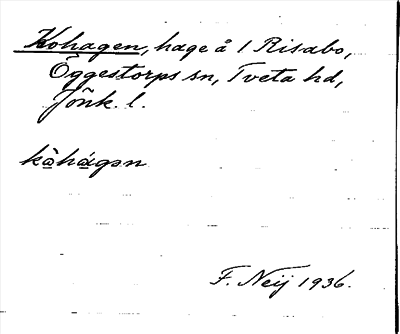 Kohagen, hage å 1 Risabo,
Eggestorps sn, Tveta hd,
Jönk. l.
kò̱há̱gən
F. Neij 1936.